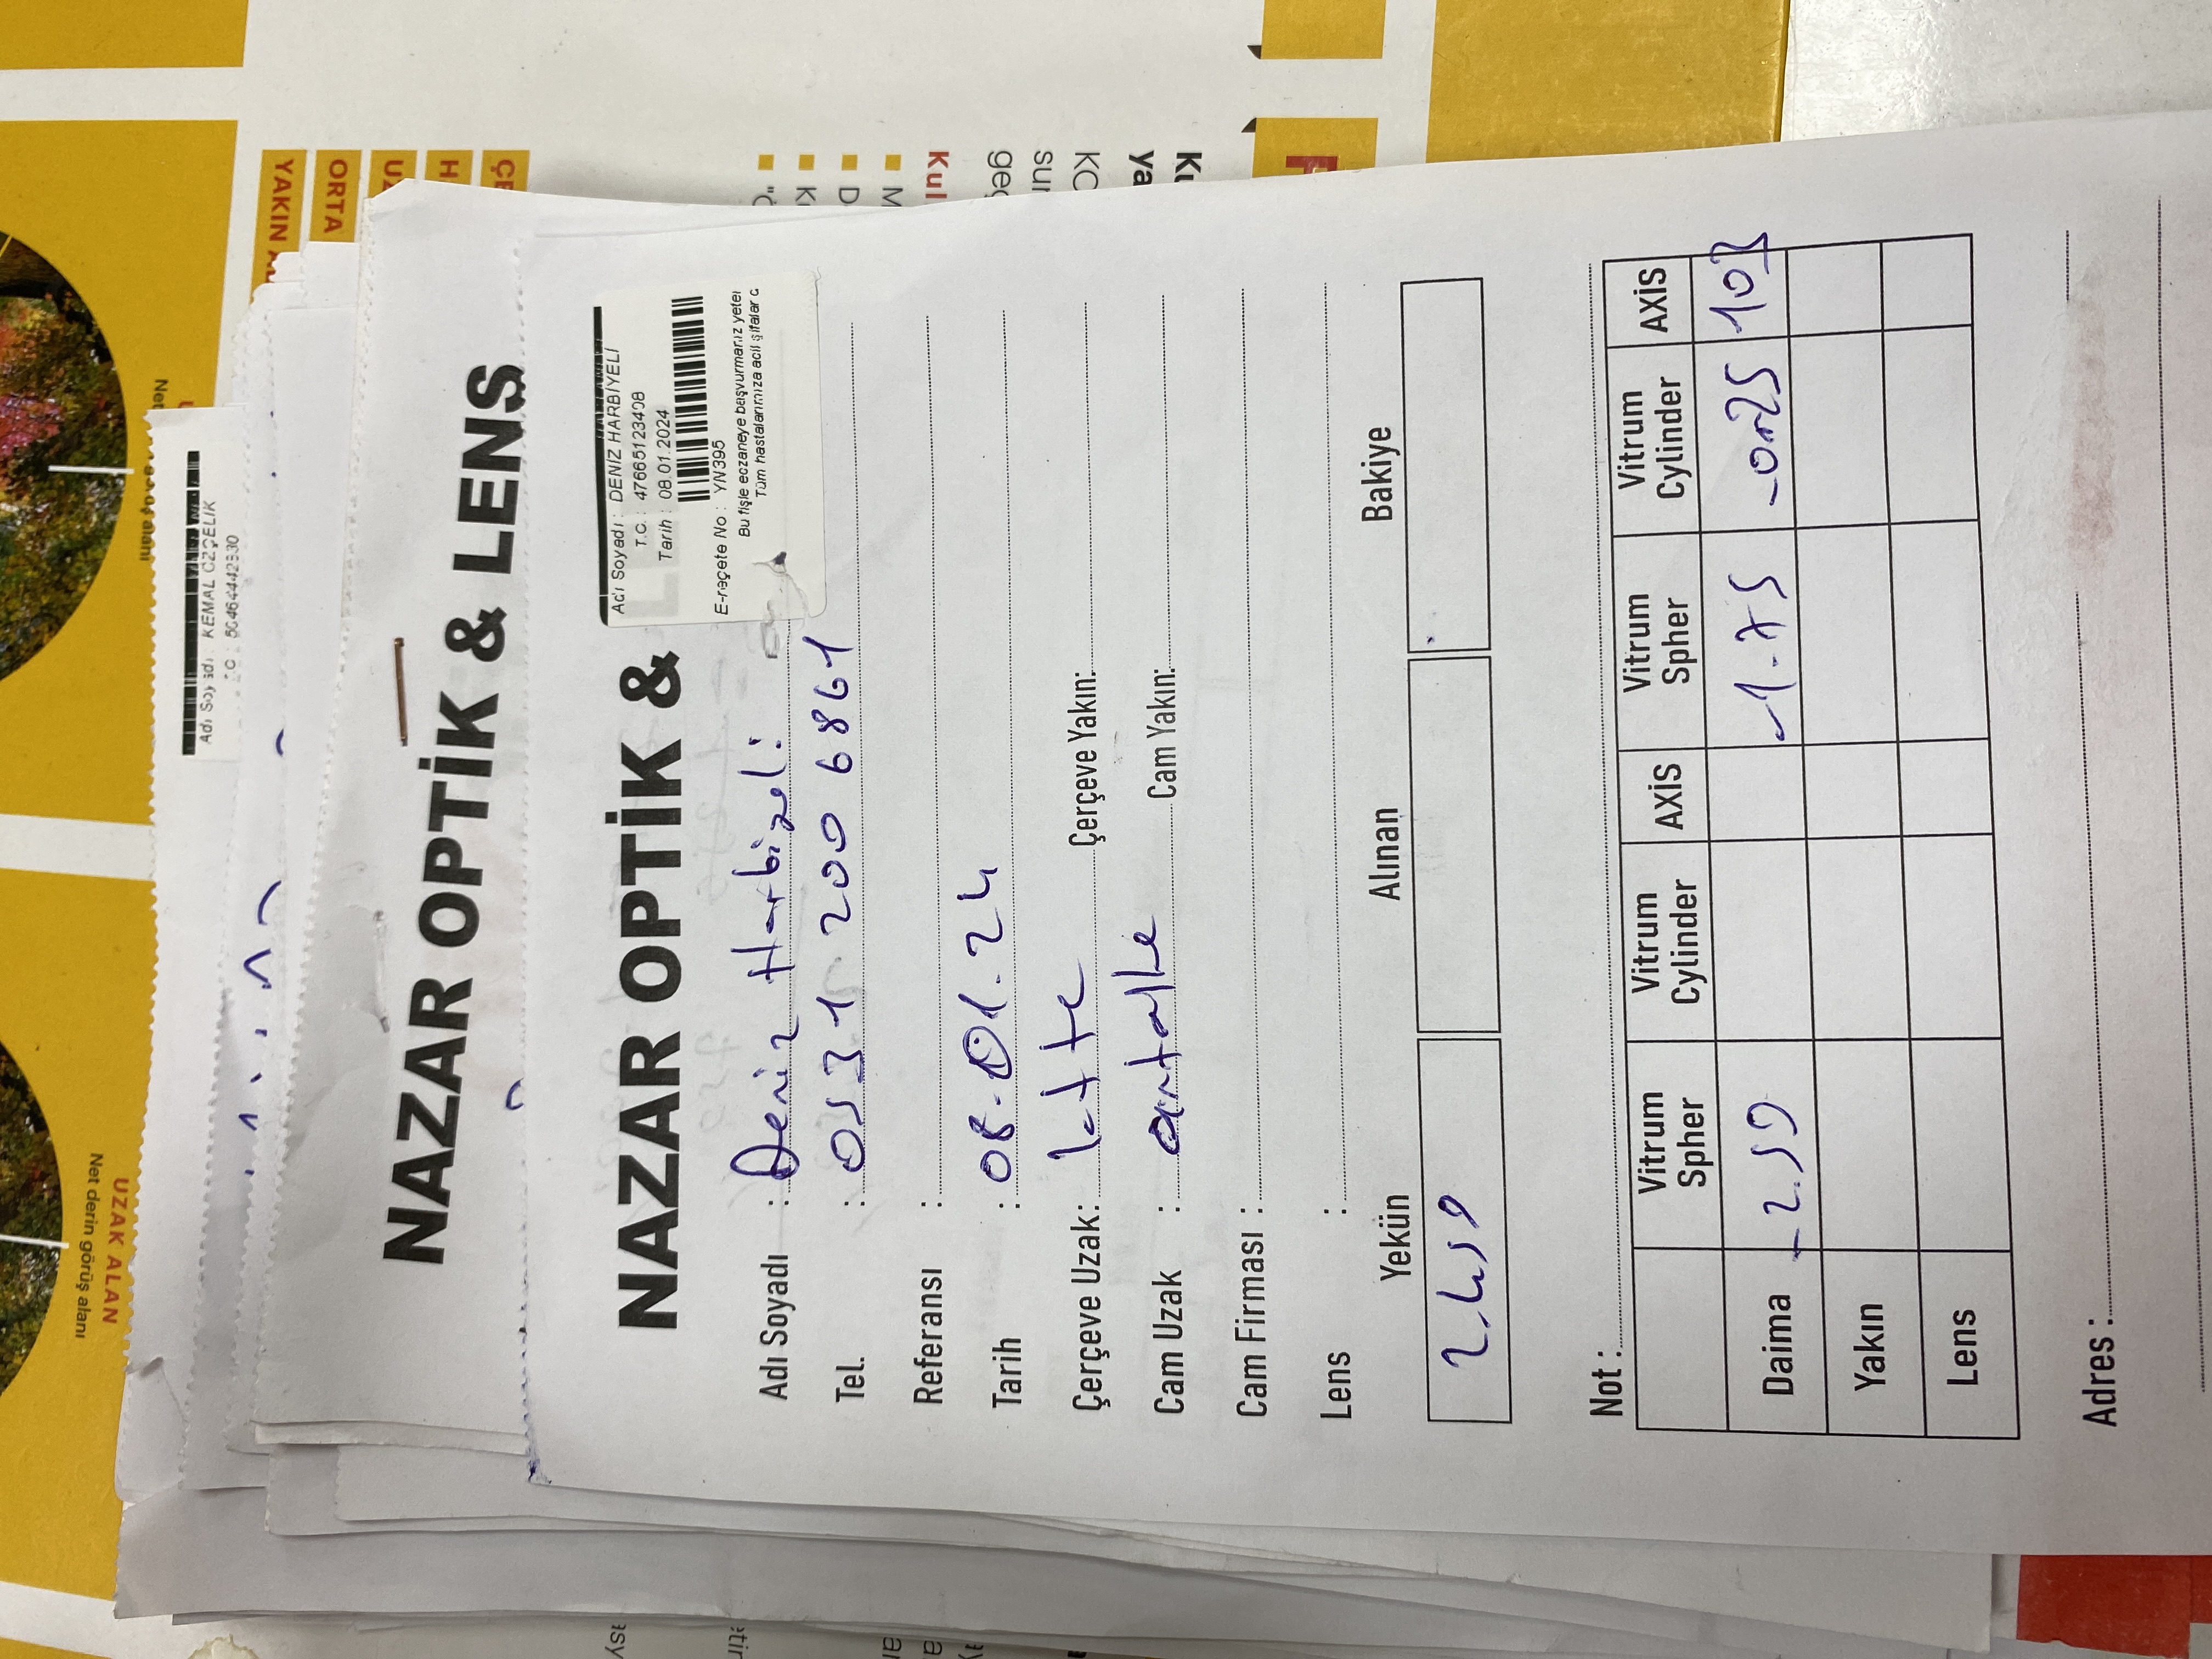 Net derin görüş alanı
UZAK ALAN
Adı Soyadı : KEMAL ÖZÇELİK
YAKIN
ORTA
NAZAR OPTİK & LENS
NAZAR OPTİK &
Adı Soyadı : DENİZ HARBİYELİ
T.C. : 47665123408
Tarih : 08.01.2024
E-reçete No : YN395
Bu fişle eczaneye başvurmanız yeter
Tüm hastalarımıza acil şifalar d
Adı Soyadı : Deniz Harbiyeli
Tel. : 0531 200 6861
Referansı :
Tarih : 08.01.24
Çerçeve Uzak: Çerçeve Yakın:
Cam Uzak : Cam Yakın:
Cam Firması :
Lens :
Yekün Alınan Bakiye
2.450
Not :
Vitrum Spher Vitrum Cylinder AXİS Vitrum Spher Vitrum Cylinder AXİS
Daima -2.50 -1.75 -0.25 103
Yakın
Lens
Adres :